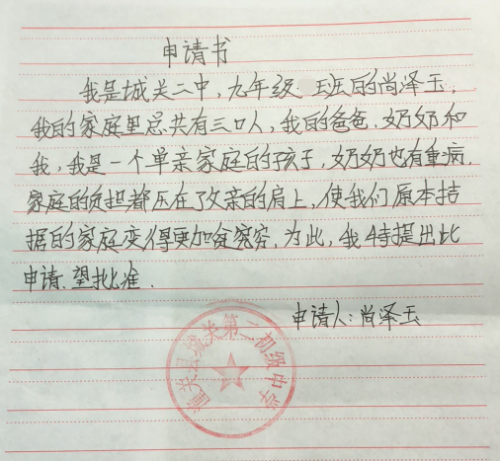 申请书
我是城关二中，九年级 班的尚泽玉，
我的家庭里总共有三口人，我的爸爸．奶奶和
我，我是一个单亲家庭的孩子，奶奶也有重病，
家庭的负担都压在了父亲的肩上，使我们原本拮
据的家庭变得更加贫穷，为此，我特提出此
申请．望批准．
申请人：尚泽玉
潼关县城关第二初级中学